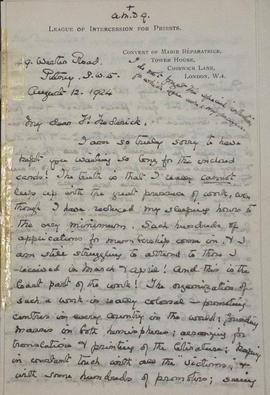 +
A.M.D.G.
LEAGUE OF INTERCESSION FOR PRIESTS.
CONVENT OF MARIE RÉPARATRICE,
TOWER HOUSE,
CHISWICK LANE,
LONDON, W.4.
9. Western Road,
Putney. S.W.5.
August 12. 1924
I do not forget the special intention
for which you ask my prayers.
My dear Fr. Frederick.
I am so truly sorry to have
kept you waiting so long for the enclosed
cards. The truth is that I really cannot
keep up with the great pressure of work, even
though I have reduced my sleeping hours to
the very minimum. Such hundreds of
applications for membership come in, & I
am still struggling to attend to those I
received in March & April! And this is the
least part of the work! The organization of
such a work is really colossal – promoting
centres in every country in the world; founding
masses in both hemispheres; arranging for
translations & printing of the literature; keeping
in constant touch with all the "Victims", &
with some hundreds of promoters;